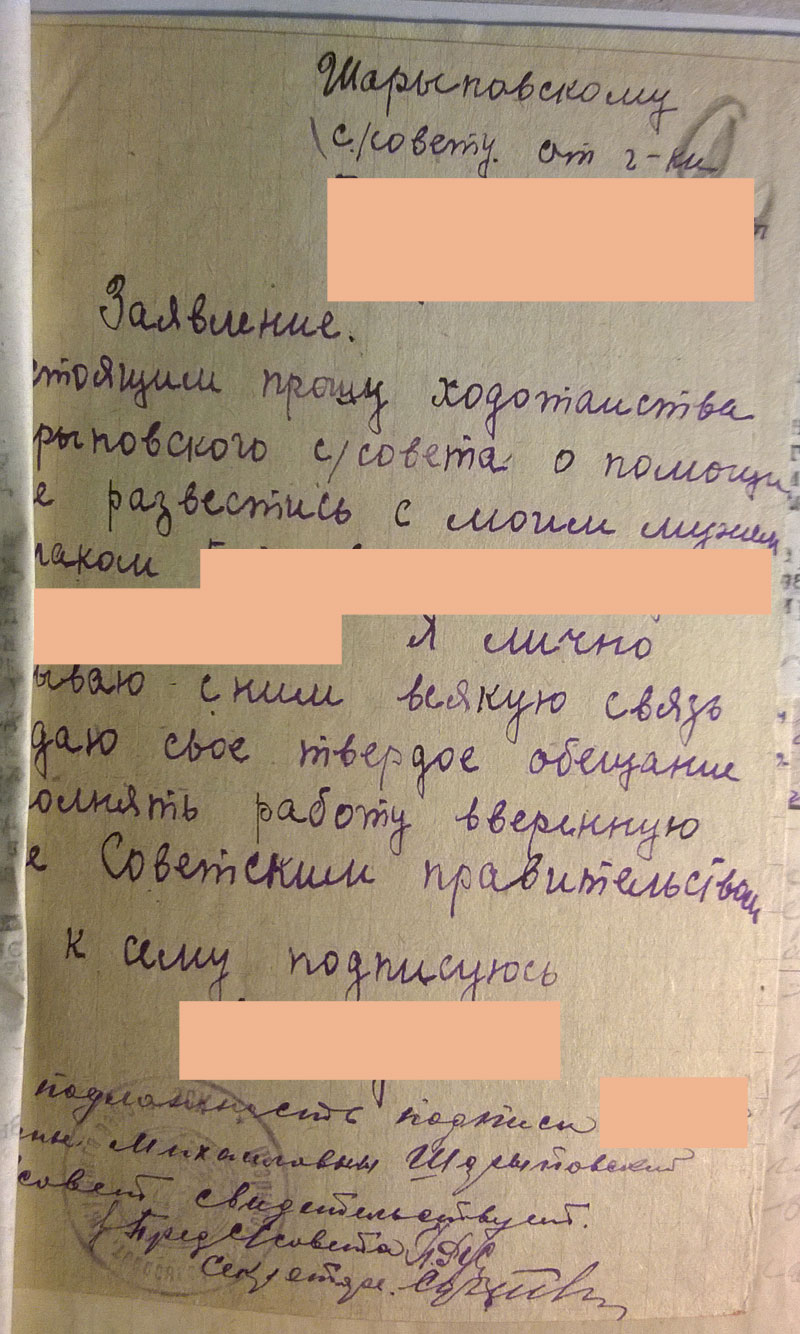 Шарыповскому
с./совету. от г-ки
Заявление.
стоящим прошу ходотаиства
рыповского с/совета о помощи
е развестись с моим мужем
Я лично
ываю с ним всякую связь
даю свое твердое обещание
олнять работу вверенную
е Советским правительством
к сему подписуюсь
подлинность подписи
Михаиловны Шарыповский
совет свидетельствует.
Пред С/совета
Секретарь.